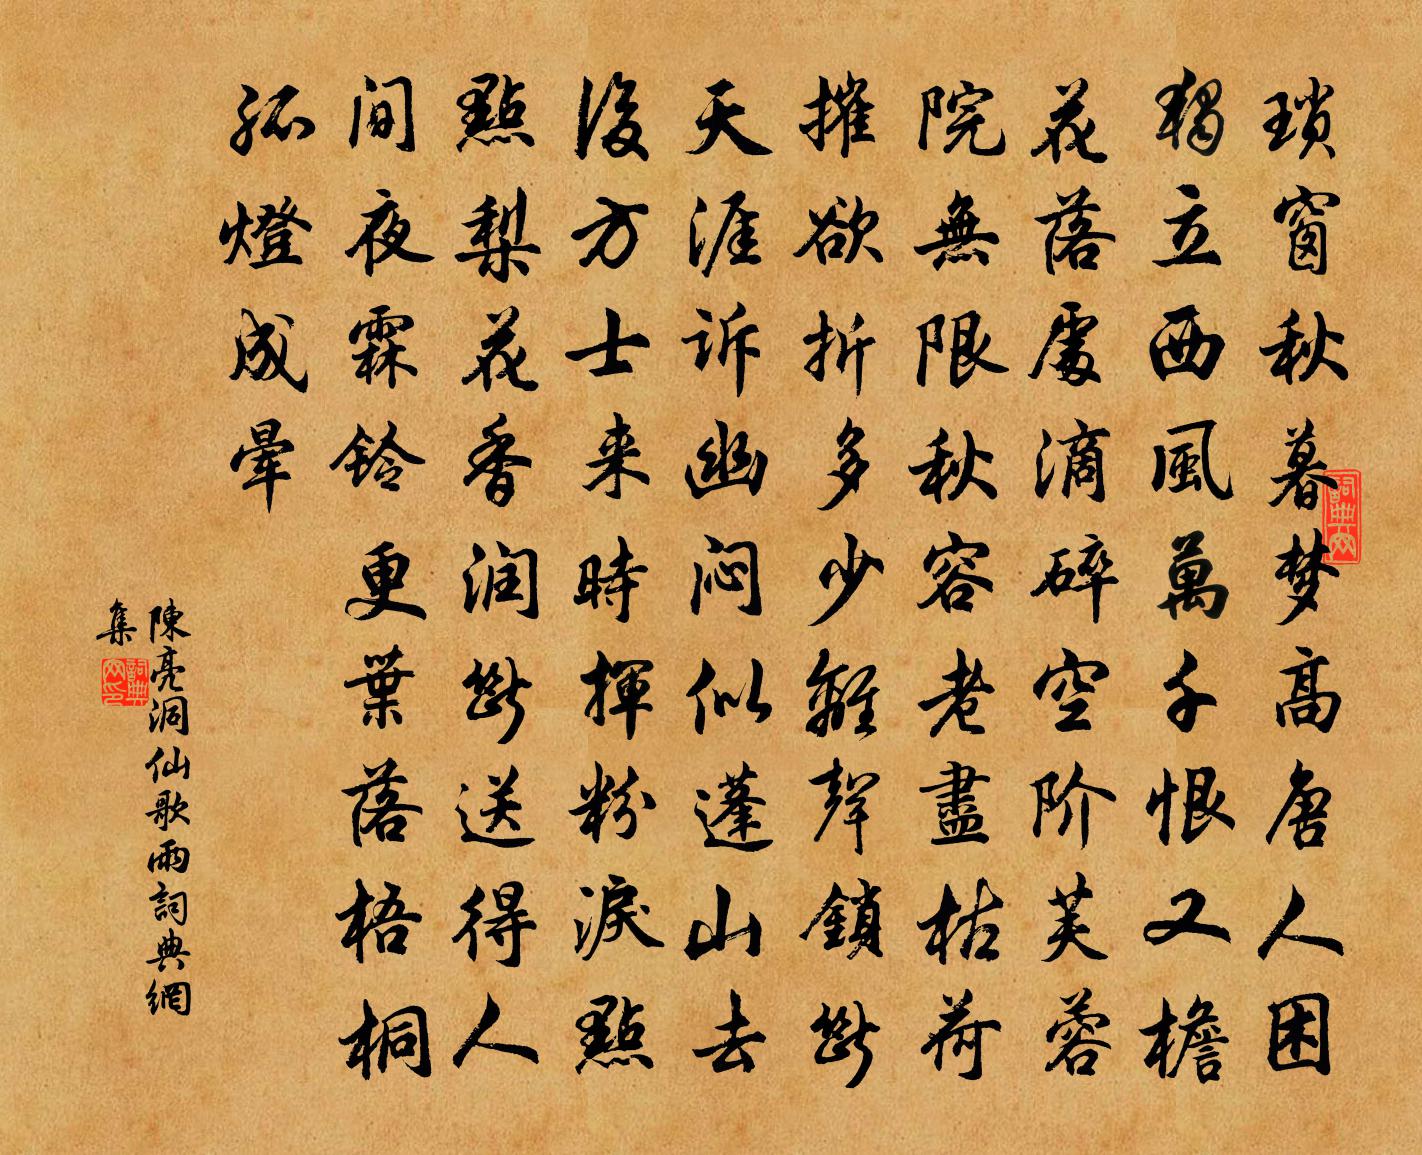 瑣窗秋暮梦高唐人困
獨立西風萬千恨又檐
花落處滴碎空阶芙蓉
院無限秋容老盡枯荷
摧欲折多少離聲鎖斷
天涯诉幽闷似蓬山去
後方士来時揮粉淚點
點梨花香润斷送得人
间夜霖铃更葉落梧桐
孤燈成暈
陳亮洞仙歌雨詞典網
集
詞典网
詞典网印